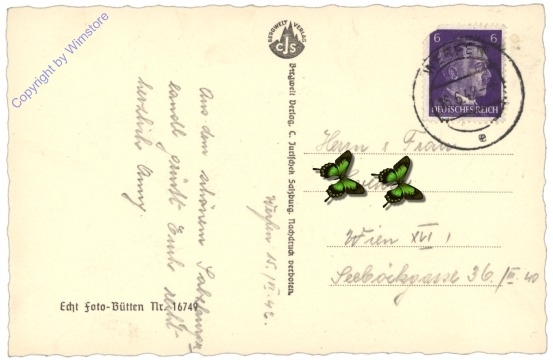 Copyright by Wimstore
BERGWELT VERLAG
CJS
Bergwelt Verlag, C. Jurischek Salzburg. Nachdruck verboten.
Echt Foto-Bütten Nr. 16749
6 6
DEUTSCHES REICH
Aus dem schönen
grüßt Euch
herzlich Anny.
Werfen 15./VI. 42.
Herrn u Frau
Wien XVI,
Seeböckgasse 36./III 40